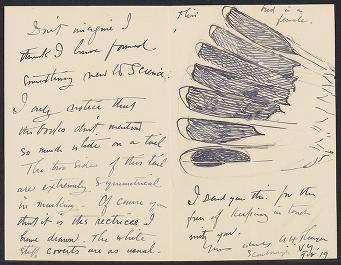 Don't imagine I
think I have found
something new to Science.
I only notice that
the books don't mention
so much white on a tail
The two sides of this tail
are extremely symmetrical
in marking. Of course you
that it is the rectrices I
have drawn. The white
coverts are as usual.
This
bird is a
female.
I send you this for the
fun of keeping in touch
with you.
Yours
19